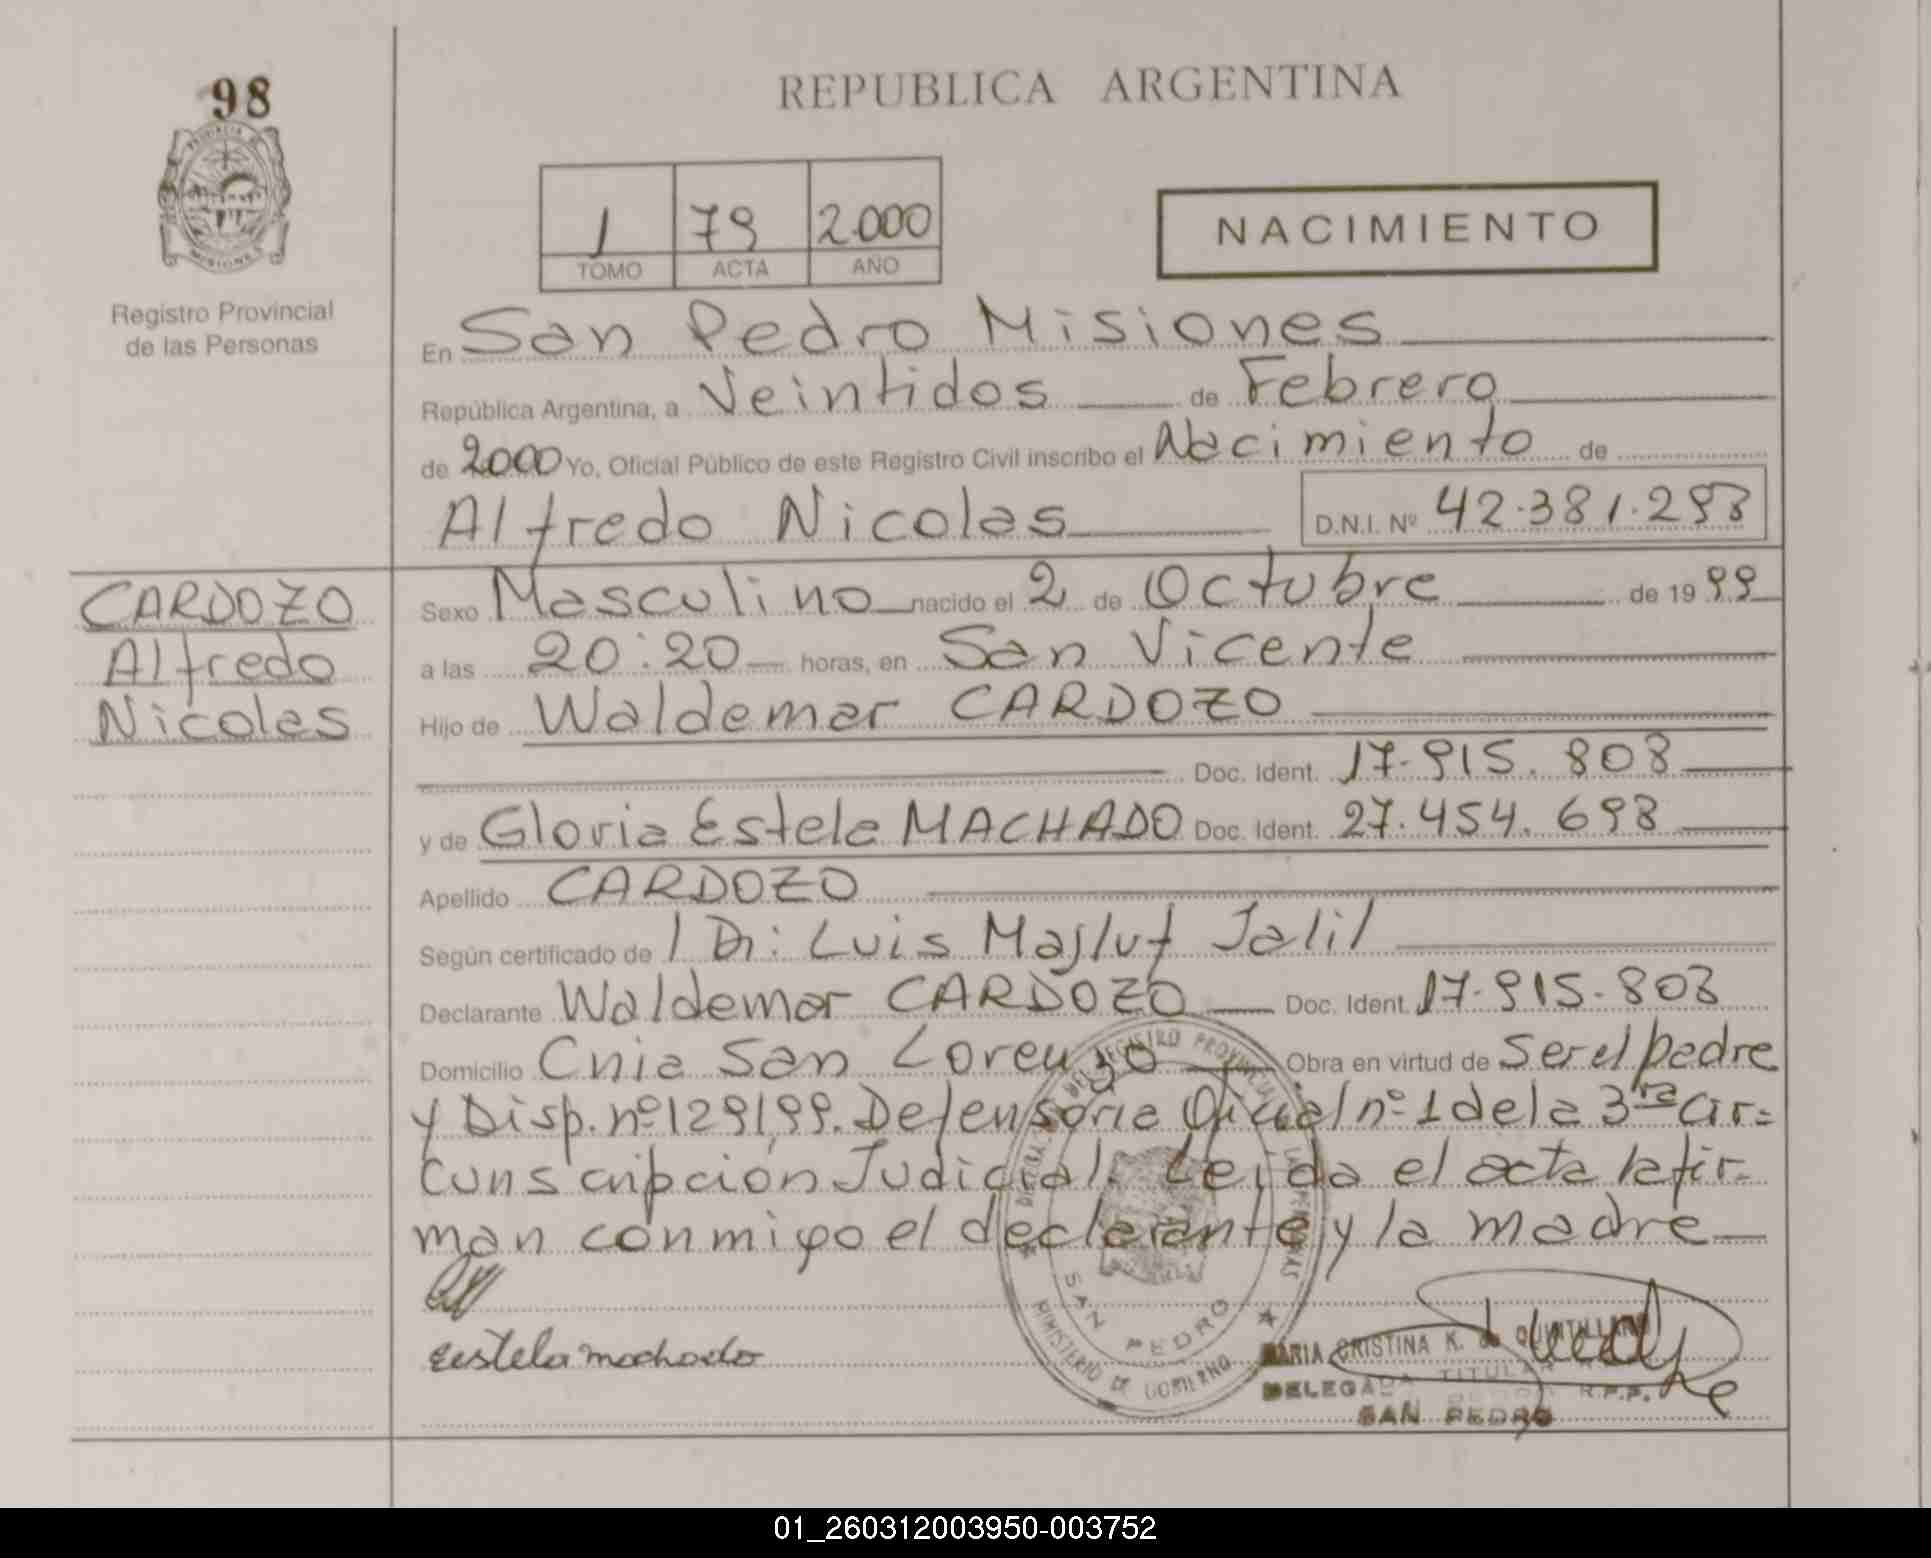 98
REPUBLICA ARGENTINA
1 79 2.000
TOMO ACTA AÑO
NACIMIENTO
Registro Provincial
de las Personas
En San Pedro Misiones
República Argentina, a Veintidos de Febrero
de 2000 Yo, Oficial Público de este Registro Civil inscribo el Nacimiento de
Alfredo Nicolas D.N.I. Nº 42.381.293
CARDOZO
Alfredo
Nicolas
Sexo Masculino nacido el 2 de Octubre de 1999
a las 20:20 horas, en San Vicente
Hijo de Waldemar CARDOZO
Doc. Ident. 17.915.803
y de Gloria Estela MACHADO Doc. Ident. 27.454.698
Apellido CARDOZO
Según certificado de Dr: Luis Majluf Jalil
Declarante Waldemar CARDOZO Doc. Ident. 17.915.803
Domicilio Cnia San Lorenzo Obra en virtud de Ser el padre
y Disp. nº 129/99. Defensoria Oficial nº 1 de la 3ra Cir=
cunscripción Judicial. Leida el acta la fir-
man conmigo el declarante y la madre
estela machado
DIRECCION DEL REGISTRO PROVINCIAL DE LAS PERSONAS
SAN PEDRO
MINISTERIO DE GOBIERNO
MARIA CRISTINA K. de QUINTILLAN
DELEGADA TITULAR R.P.P.
SAN PEDRO
01_260312003950-003752